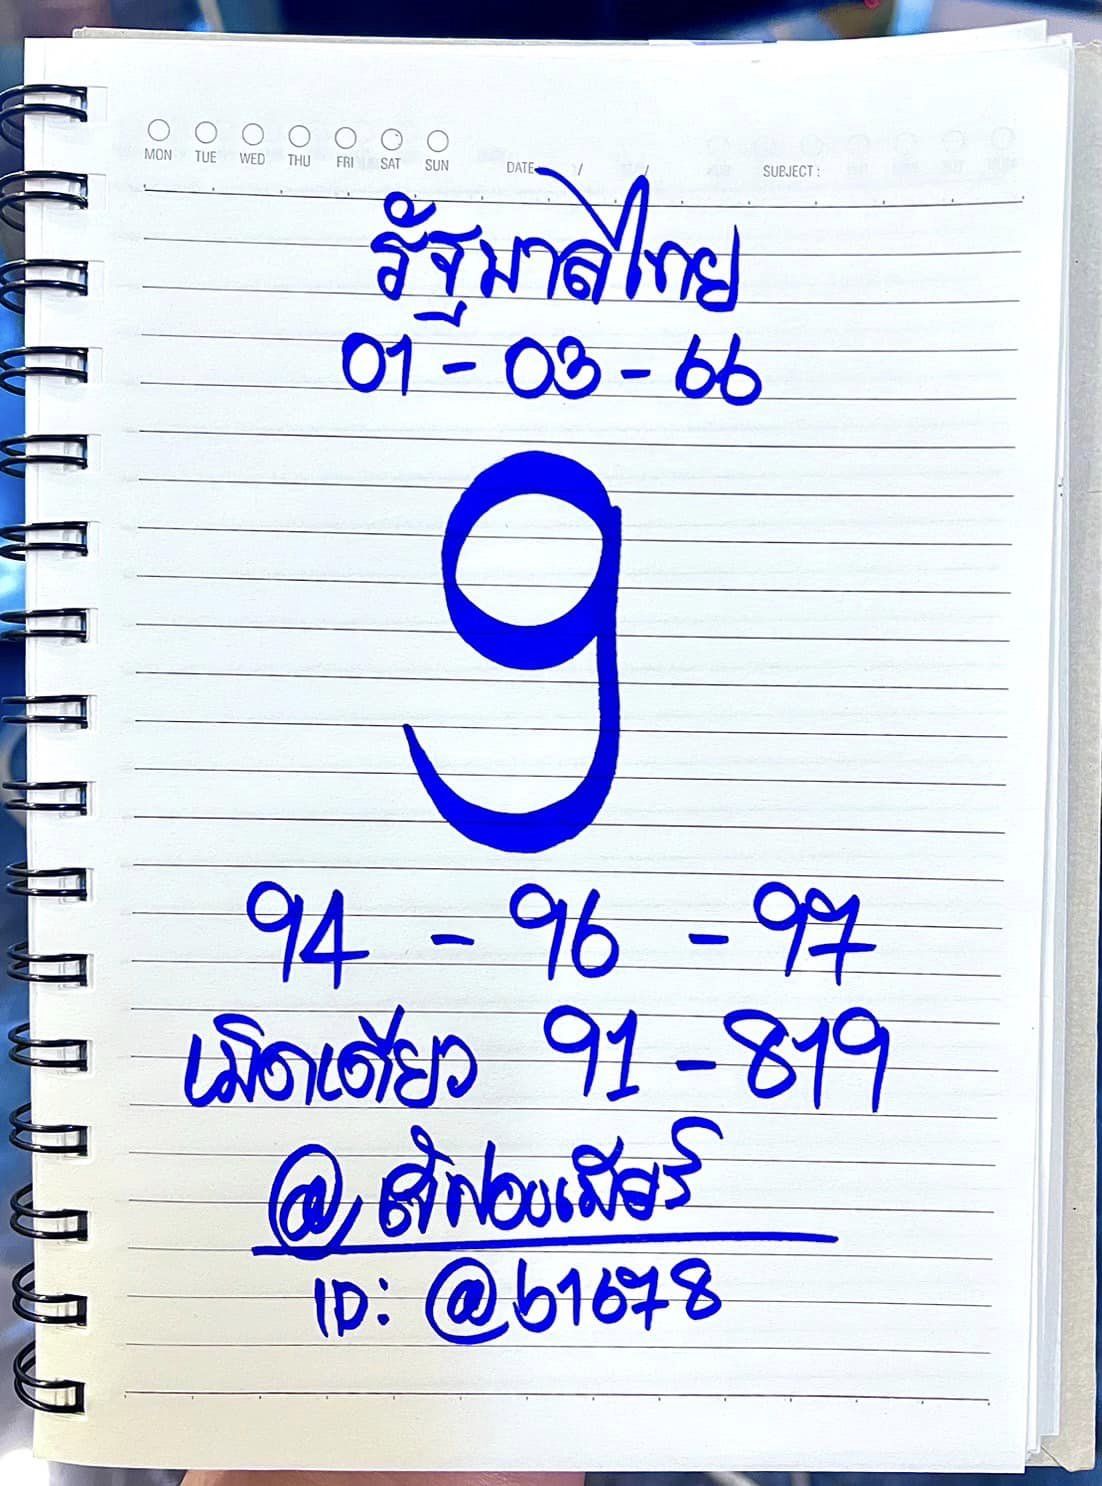 MON TUE WED THU FRI SAT SUN DATE / / SUBJECT :
รัฐบาลไทย
01 - 03 - 66
9
94 - 96 - 97
เม็ดเดียว 91 - 819
@
ID: @b1678